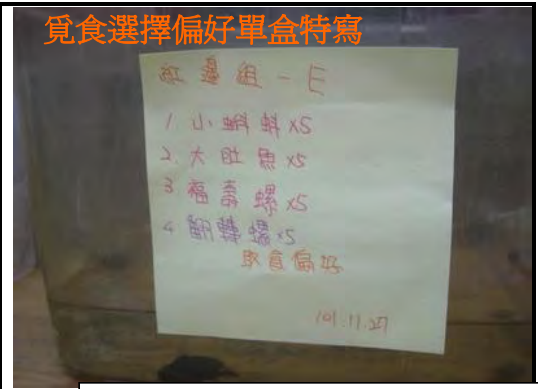 覓食選擇偏好單盒特寫
紅邊組-E
1. 小蝌蚪x5
2. 大肚魚x5
3 福壽螺x5
4 錐蜷螺x5
取食偏好
101.11.27